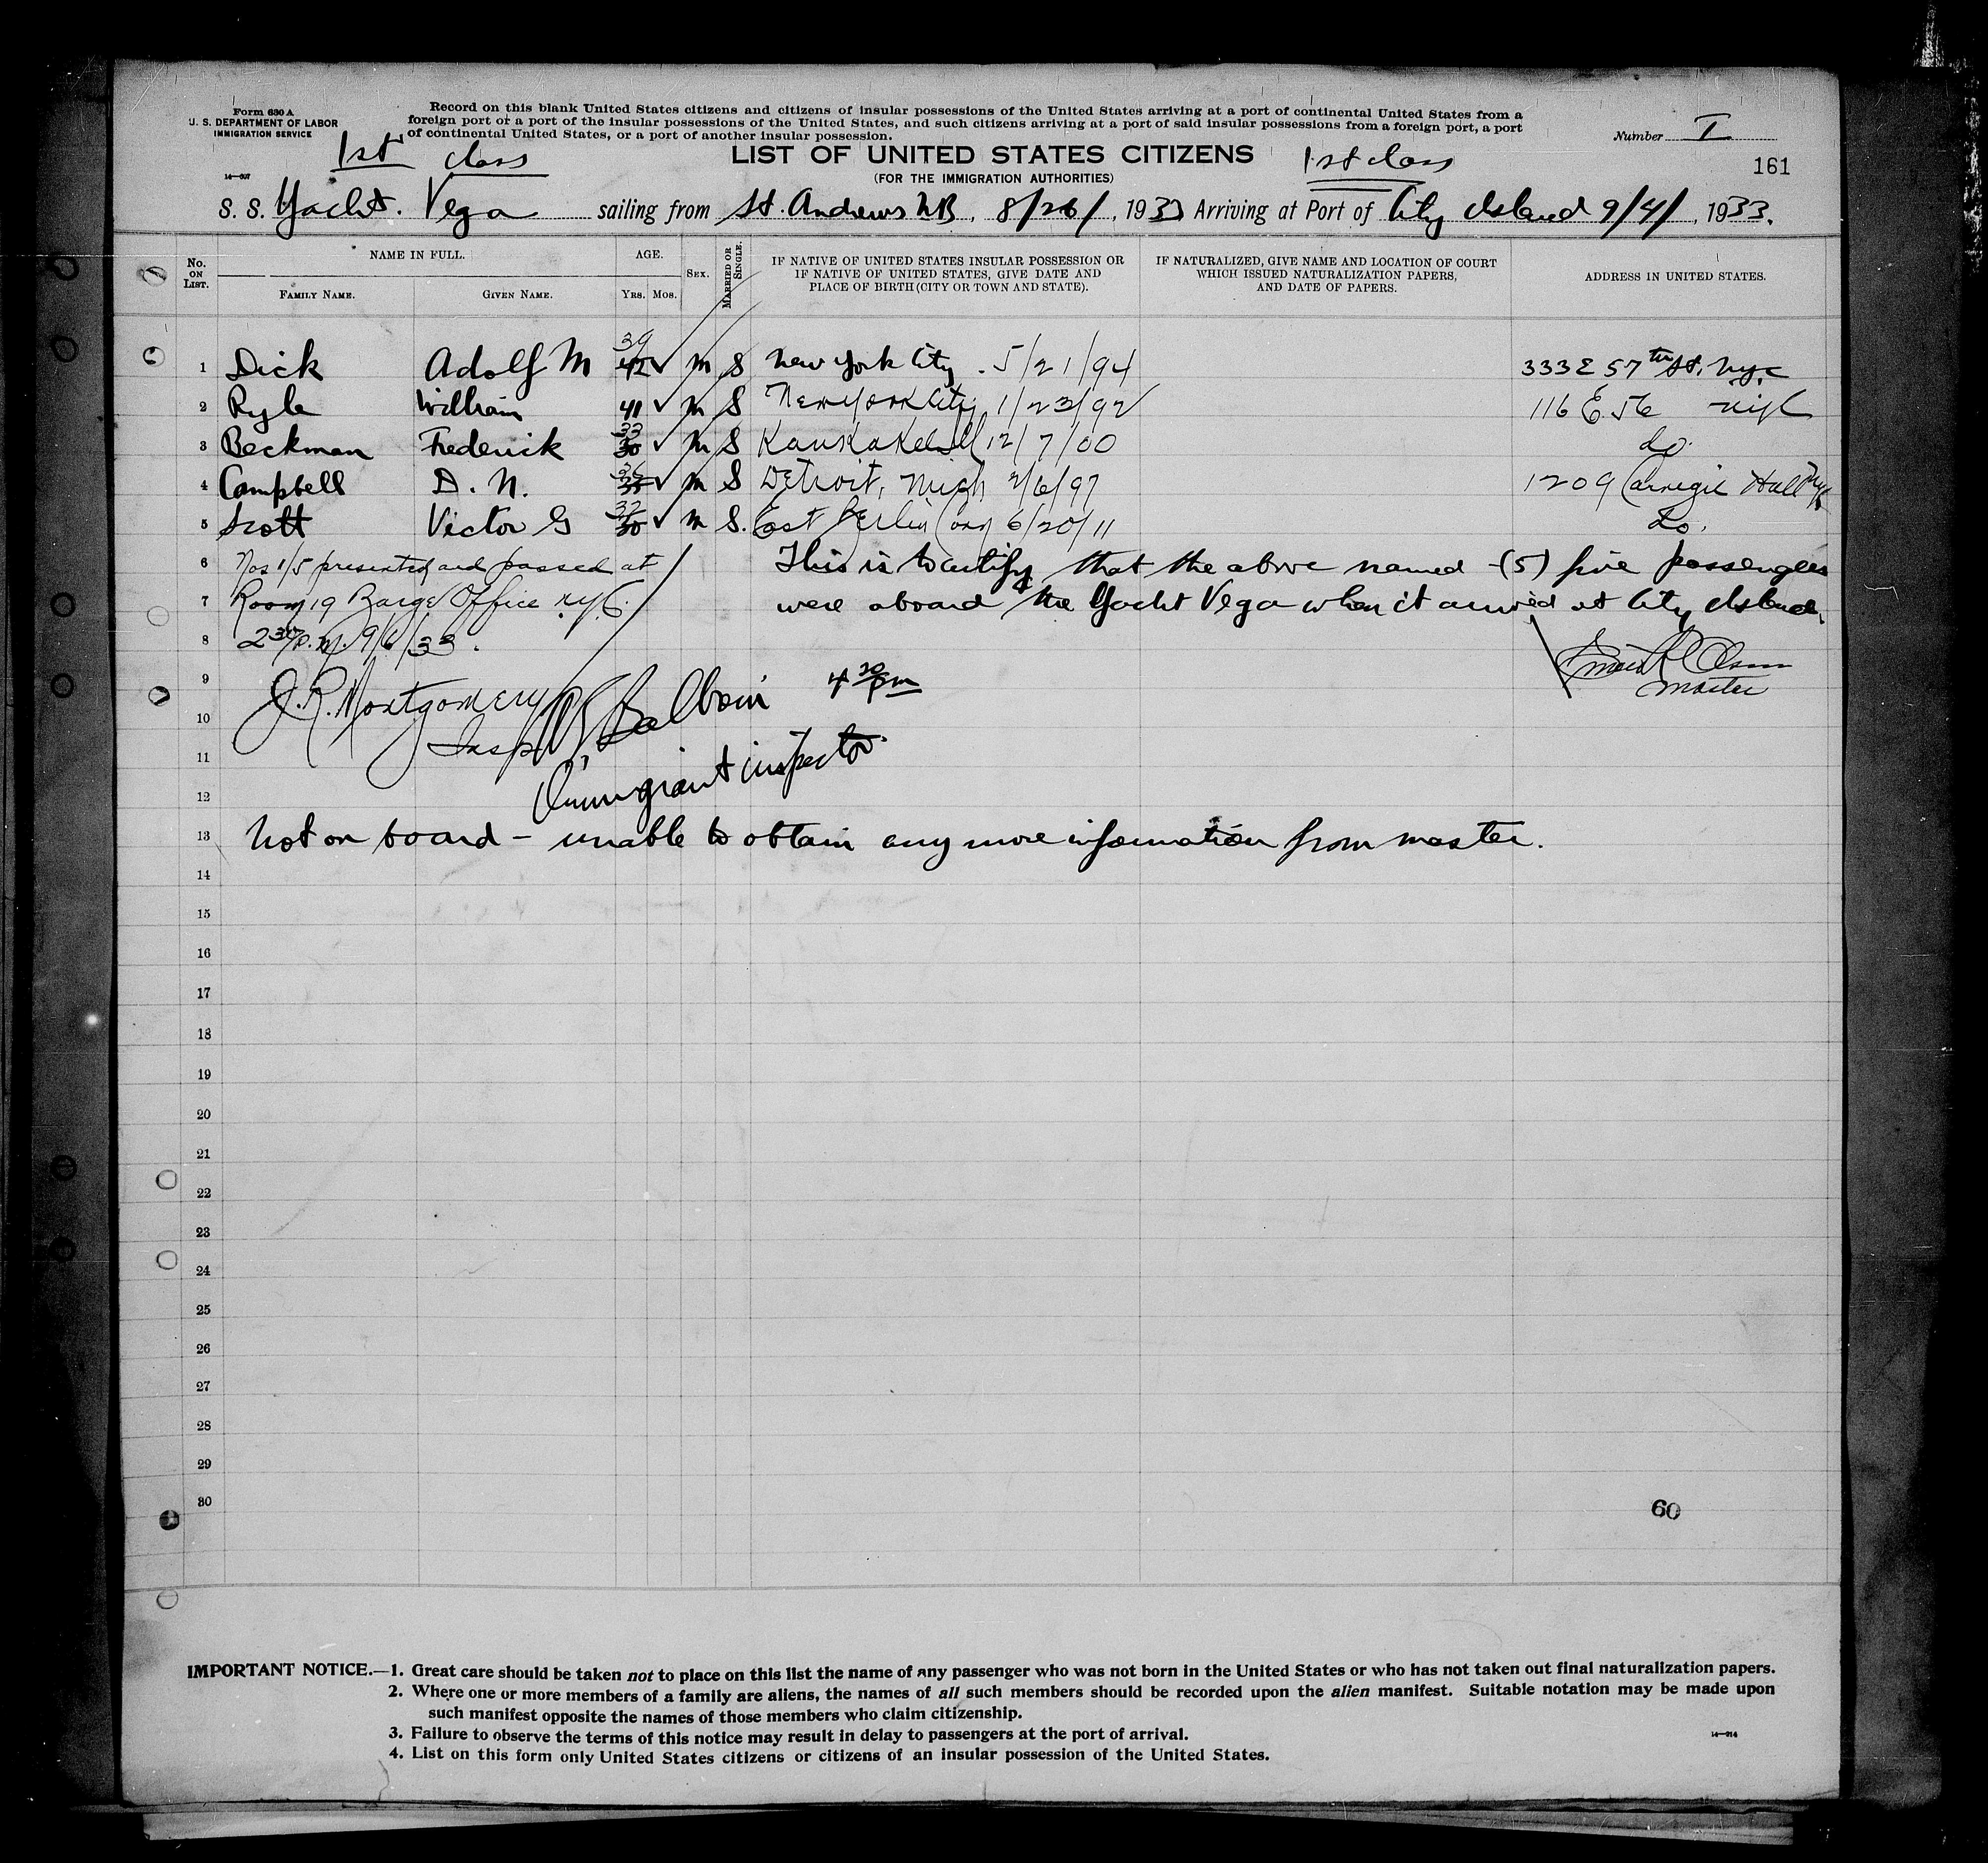 Form 630 A
U. S. DEPARTMENT OF LABOR
IMMIGRATION SERVICE
Record on this blank United States citizens and citizens of insular possessions of the United States arriving at a port of continental United States from a
foreign port or a port of the insular possessions of the United States, and such citizens arriving at a port of said insular possessions from a foreign port, a port
of continental United States, or a port of another insular possession.
Number I
1st class
LIST OF UNITED STATES CITIZENS
1st class
161
(FOR THE IMMIGRATION AUTHORITIES)
S. S. Yacht. Vega sailing from St. Andrews NB, 8/26/, 1933 Arriving at Port of City Island 9/4/, 1933.
No. ON LIST.
NAME IN FULL.
FAMILY NAME.
GIVEN NAME.
AGE.
YRS. MOS.
SEX.
MARRIED OR SINGLE.
IF NATIVE OF UNITED STATES INSULAR POSSESSION OR
IF NATIVE OF UNITED STATES, GIVE DATE AND
PLACE OF BIRTH (CITY OR TOWN AND STATE).
IF NATURALIZED, GIVE NAME AND LOCATION OF COURT
WHICH ISSUED NATURALIZATION PAPERS,
AND DATE OF PAPERS.
ADDRESS IN UNITED STATES.
1 Dick Adolf M 39 42 ✓ m S New York City . 5/21/94 333 E 57th St. Nyc
2 Ryle William 41 ✓ m S New York City 1/23/92 116 E 56 NYC
3 Beckman Frederick 33 30 ✓ m S Kankakee Ill 12/7/00 Do.
4 Campbell D. N. 36 35 ✓ m S Detroit, Mich 2/6/97 1209 Carnegie Hall NYC
5 Scott Victor G 30 ✓ m S. East Berlin Conn 6/20/11 Do.
6 Nos 1/5 presented and passed at This is to certify that the above named -(5) five passengers
7 Room 19 Barge Office N.Y.C. were aboard the Yacht Vega when it arrived at City Island.
8 2 30 P.M. 9/6/33.
Olsen
master
9 J. R. Montgomery Balbrin 4 30 pm
10 Insp
11 Immigrant inspector.
12
13 Not on board - unable to obtain any more information from master.
14
15
16
17
18
19
20
21
22
23
24
25
26
27
28
29
30
60
IMPORTANT NOTICE.—1. Great care should be taken not to place on this list the name of any passenger who was not born in the United States or who has not taken out final naturalization papers.
2. Where one or more members of a family are aliens, the names of all such members should be recorded upon the alien manifest. Suitable notation may be made upon
such manifest opposite the names of those members who claim citizenship.
3. Failure to observe the terms of this notice may result in delay to passengers at the port of arrival.
4. List on this form only United States citizens or citizens of an insular possession of the United States.
14—914